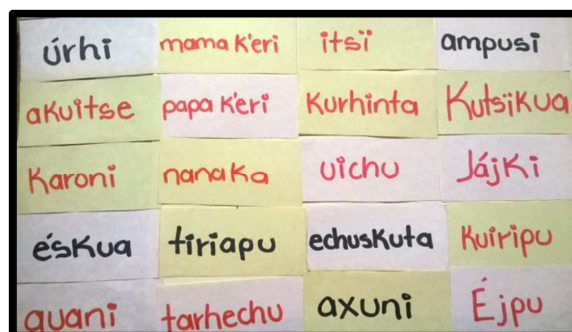 úrhi mama k'eri itsï ampusi
akuitse papa k'eri kurhinta Kutsïkua
Karoni nanaka uichu Jájki
éskua tiriapu echuskuta kuiripu
auani tarhechu axuni Éjpu